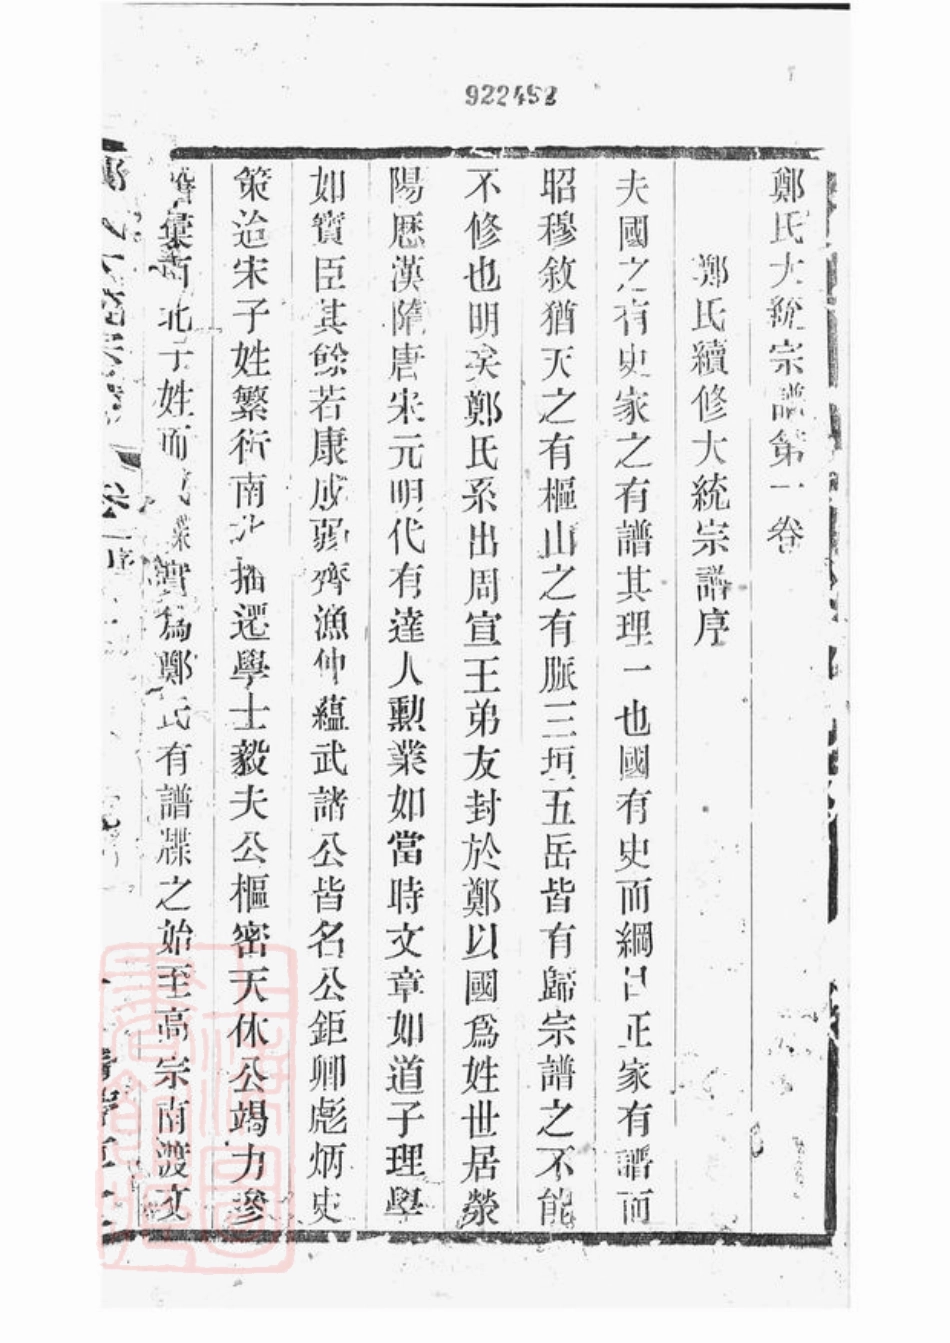 922452
鄭氏大統宗譜第一卷
鄭氏續修大統宗譜序
夫國之有史家之有譜其理一也國有史而綱正家有譜而
昭穆敘猶天之有樞山之有脈三垣五岳皆有歸宗譜之不能
不修也明矣鄭氏系出周宣王弟友封於鄭以國爲姓世居滎
陽歷漢隋唐宋元明代有達人勳業如當時文章如道子理學
如實臣其餘若康成弱齊漁仲蘊武諸公皆名公鉅卿彪炳史
策迨宋子姓繁衍南北播遷學士毅夫公樞密天休公竭力滲
北子姓而實爲鄭氏有譜牒之始至高宗南渡文
卷一序
上海圖書館藏